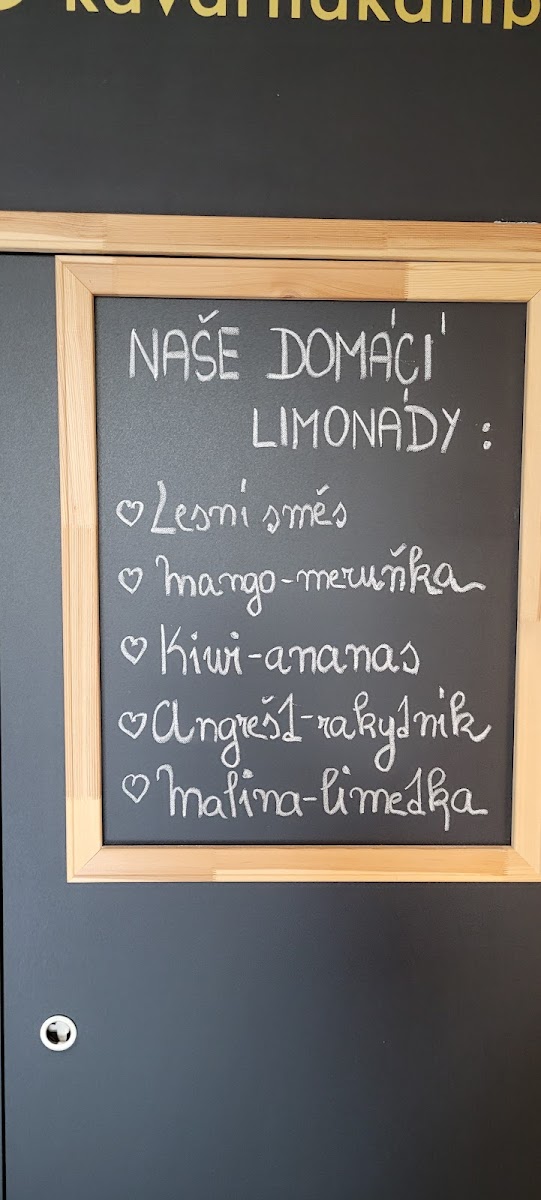 NAŠE DOMÁCÍ
LIMONÁDY :
♡ Lesní směs
♡ Mango-meruňka
♡ Kiwi-ananas
♡ Angrešt-rakytník
♡ Malina-limetka